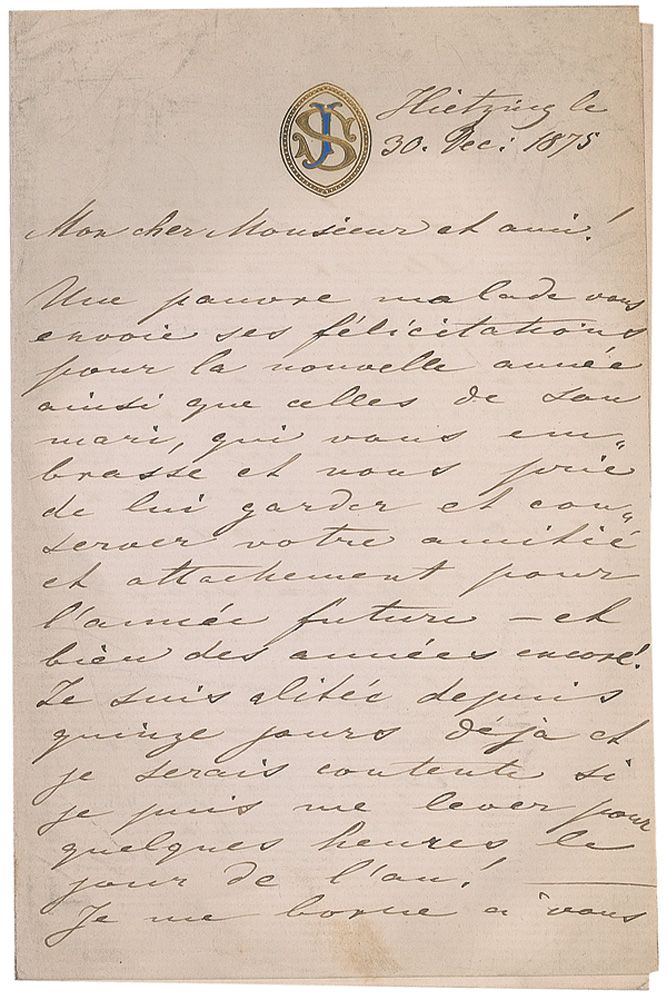 JS
Hietzing le
30. Dec. 1875
Mon cher Monsieur et ami!
Une pauvre malade vous
envoie ses félicitations
pour la nouvelle année
ainsi que celles de son
mari, qui vous em-
brasse et vous prie
de lui garder et con-
server votre amitié
et attachement pour
l'année future – et
bien des années encore!
Je suis alitée depuis
quinze jours déjà et
je serais contente si
je puis me lever pour
quelques heures le
jour de l'an! —
Je me borne à vous